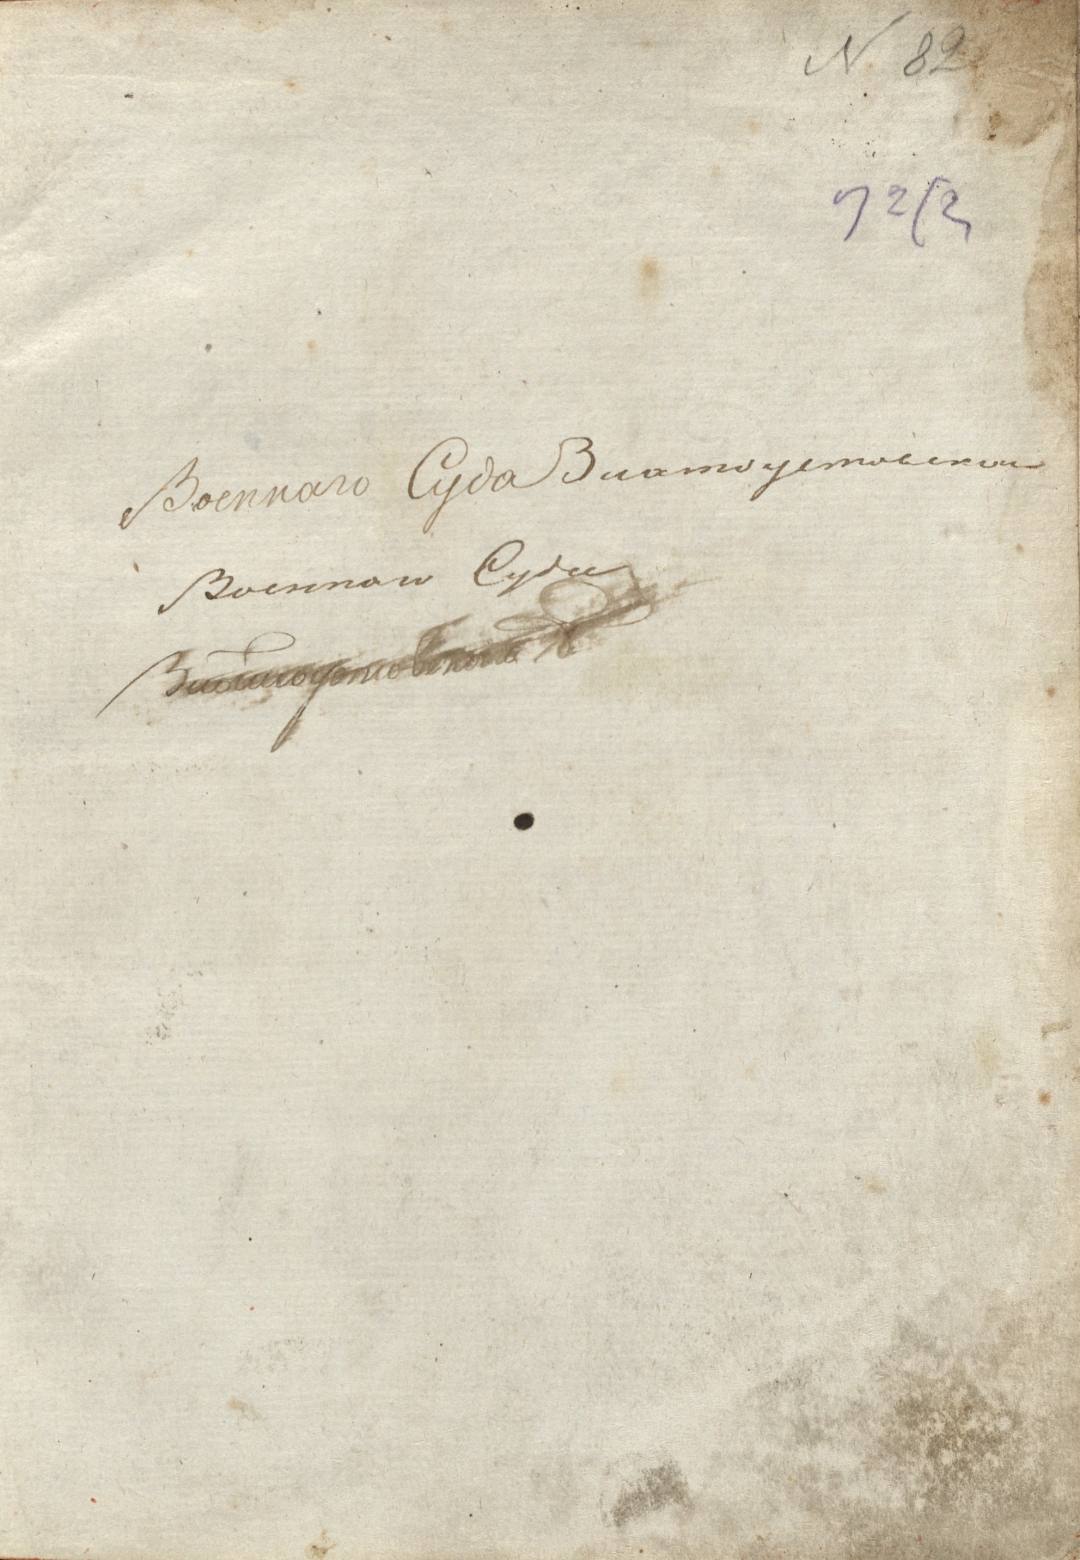 N 82
72/2
Военнаго Суда Златоустовскои
Военнаго Суда
Златоустовскои